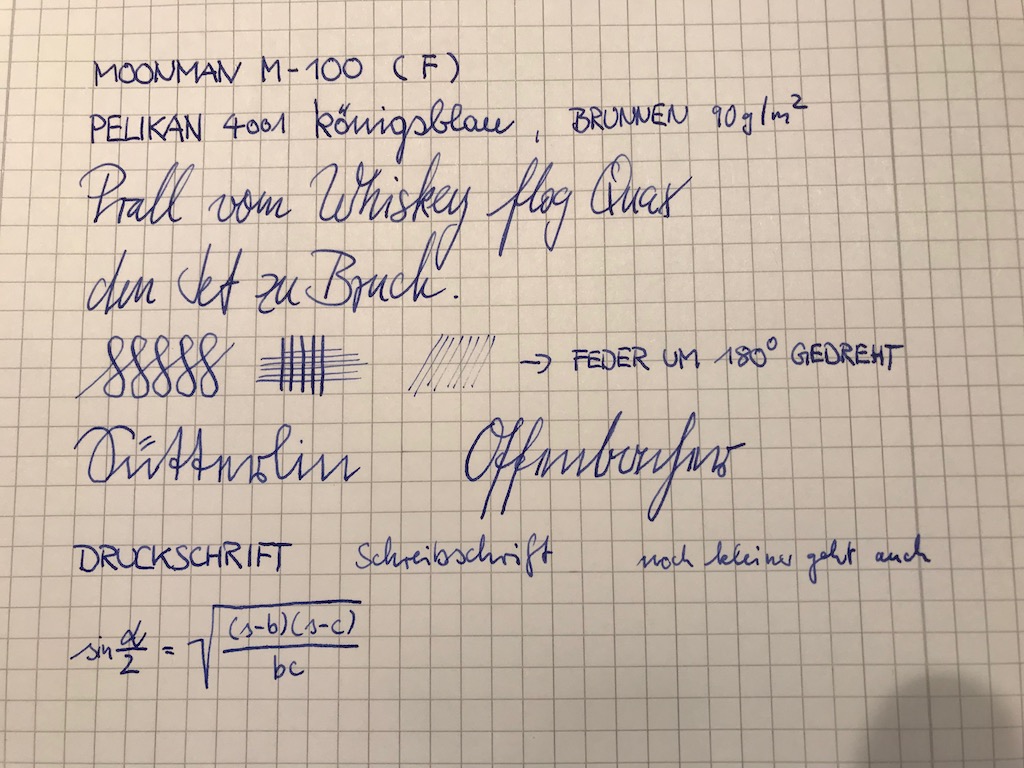 MOONMAN M-100 (F)
PELIKAN 4001 königsblau, BRUNNEN 90g/m²
Prall vom Whiskey flog Quax
den Jet zu Bruch.
→ FEDER UM 180° GEDREHT
Sütterlin Offenbacher
DRUCKSCHRIFT Schreibschrift noch kleiner geht auch
sin α/2 = √((s-b)(s-c)/bc)